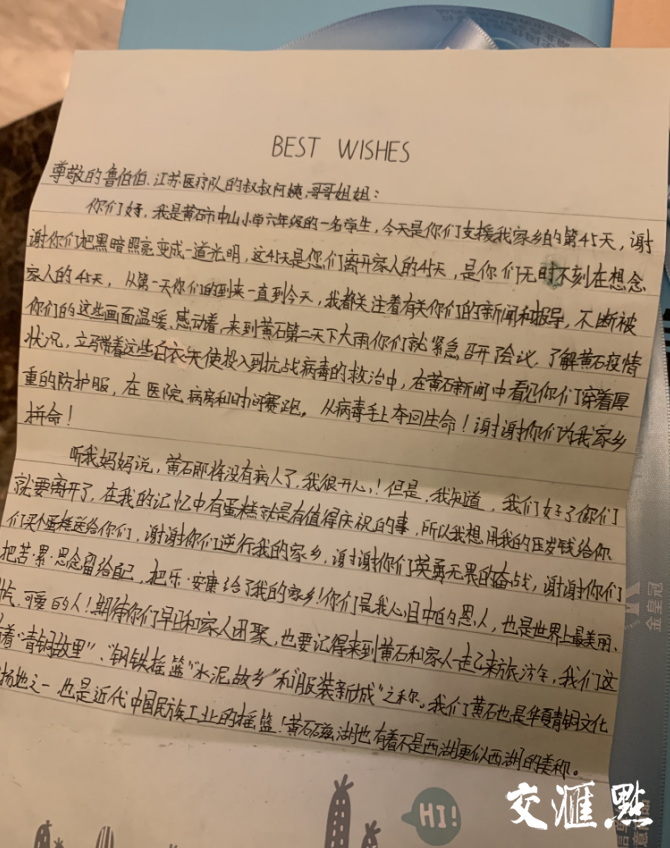 BEST WISHES
尊敬的鲁伯伯、江苏医疗队的叔叔阿姨、哥哥姐姐:
你们好,我是黄石市中山小学六年级的一名学生,今天是你们支援我家乡的第45天,谢
谢你们把黑暗照亮变成一道光明,这45天是您们离开家人的45天,是你们无时不刻在想念
家人的45天,从第一天你们的到来一直到今天,我都关注着有关你们的新闻和报导,不断被
你们的这些画面温暖、感动着,来到黄石第二天下大雨你们就紧急召开会议,了解黄石疫情
状况,立马带着这些白衣天使投入到抗战病毒的救治中,在黄石新闻中看见你们穿着厚
重的防护服,在医院、病房和时间赛跑,从病毒手上夺回生命!谢谢你们为我家乡
拼命!
听我妈妈说,黄石即将没有病人了,我很开心!但是,我知道,我们好了你们
就要离开了,在我的记忆中有蛋糕就是有值得庆祝的事,所以我想用我的压岁钱给你
们买个蛋糕送给你们,谢谢你们逆行我的家乡,谢谢你们英勇无畏的奋战,谢谢你们
把苦·累·思念留给自己,把乐·安康给了我的家乡!你们是我心目中的恩人,也是世界上最美丽、
可爱的人!期待你们早日和家人团聚,也要记得来到黄石和家人一起来旅游,我们这
着“青铜故里”、“钢铁摇篮”“水泥故乡”和“服装新城”之称。我们黄石也是华夏青铜文化
地之一也是近代中国民族工业的摇篮!黄石磁湖也有着不是西湖更似西湖的美称。
HI!
金皇冠
交汇點